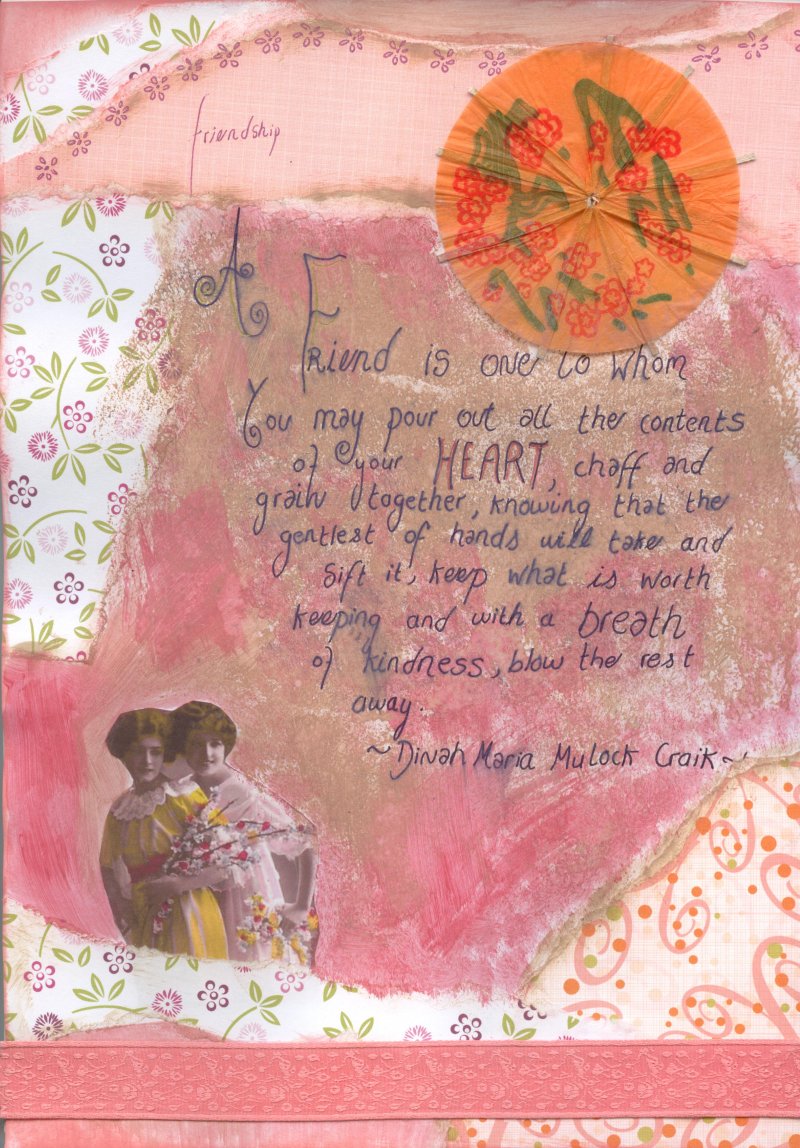 friendship
A
Friend is one to whom
You may pour out all the contents
of your HEART, chaff and
grain together, knowing that the
gentlest of hands will take and
sift it, keep what is worth
keeping and with a breath
of kindness, blow the rest
away.
~Dinah Maria Mulock Craik~